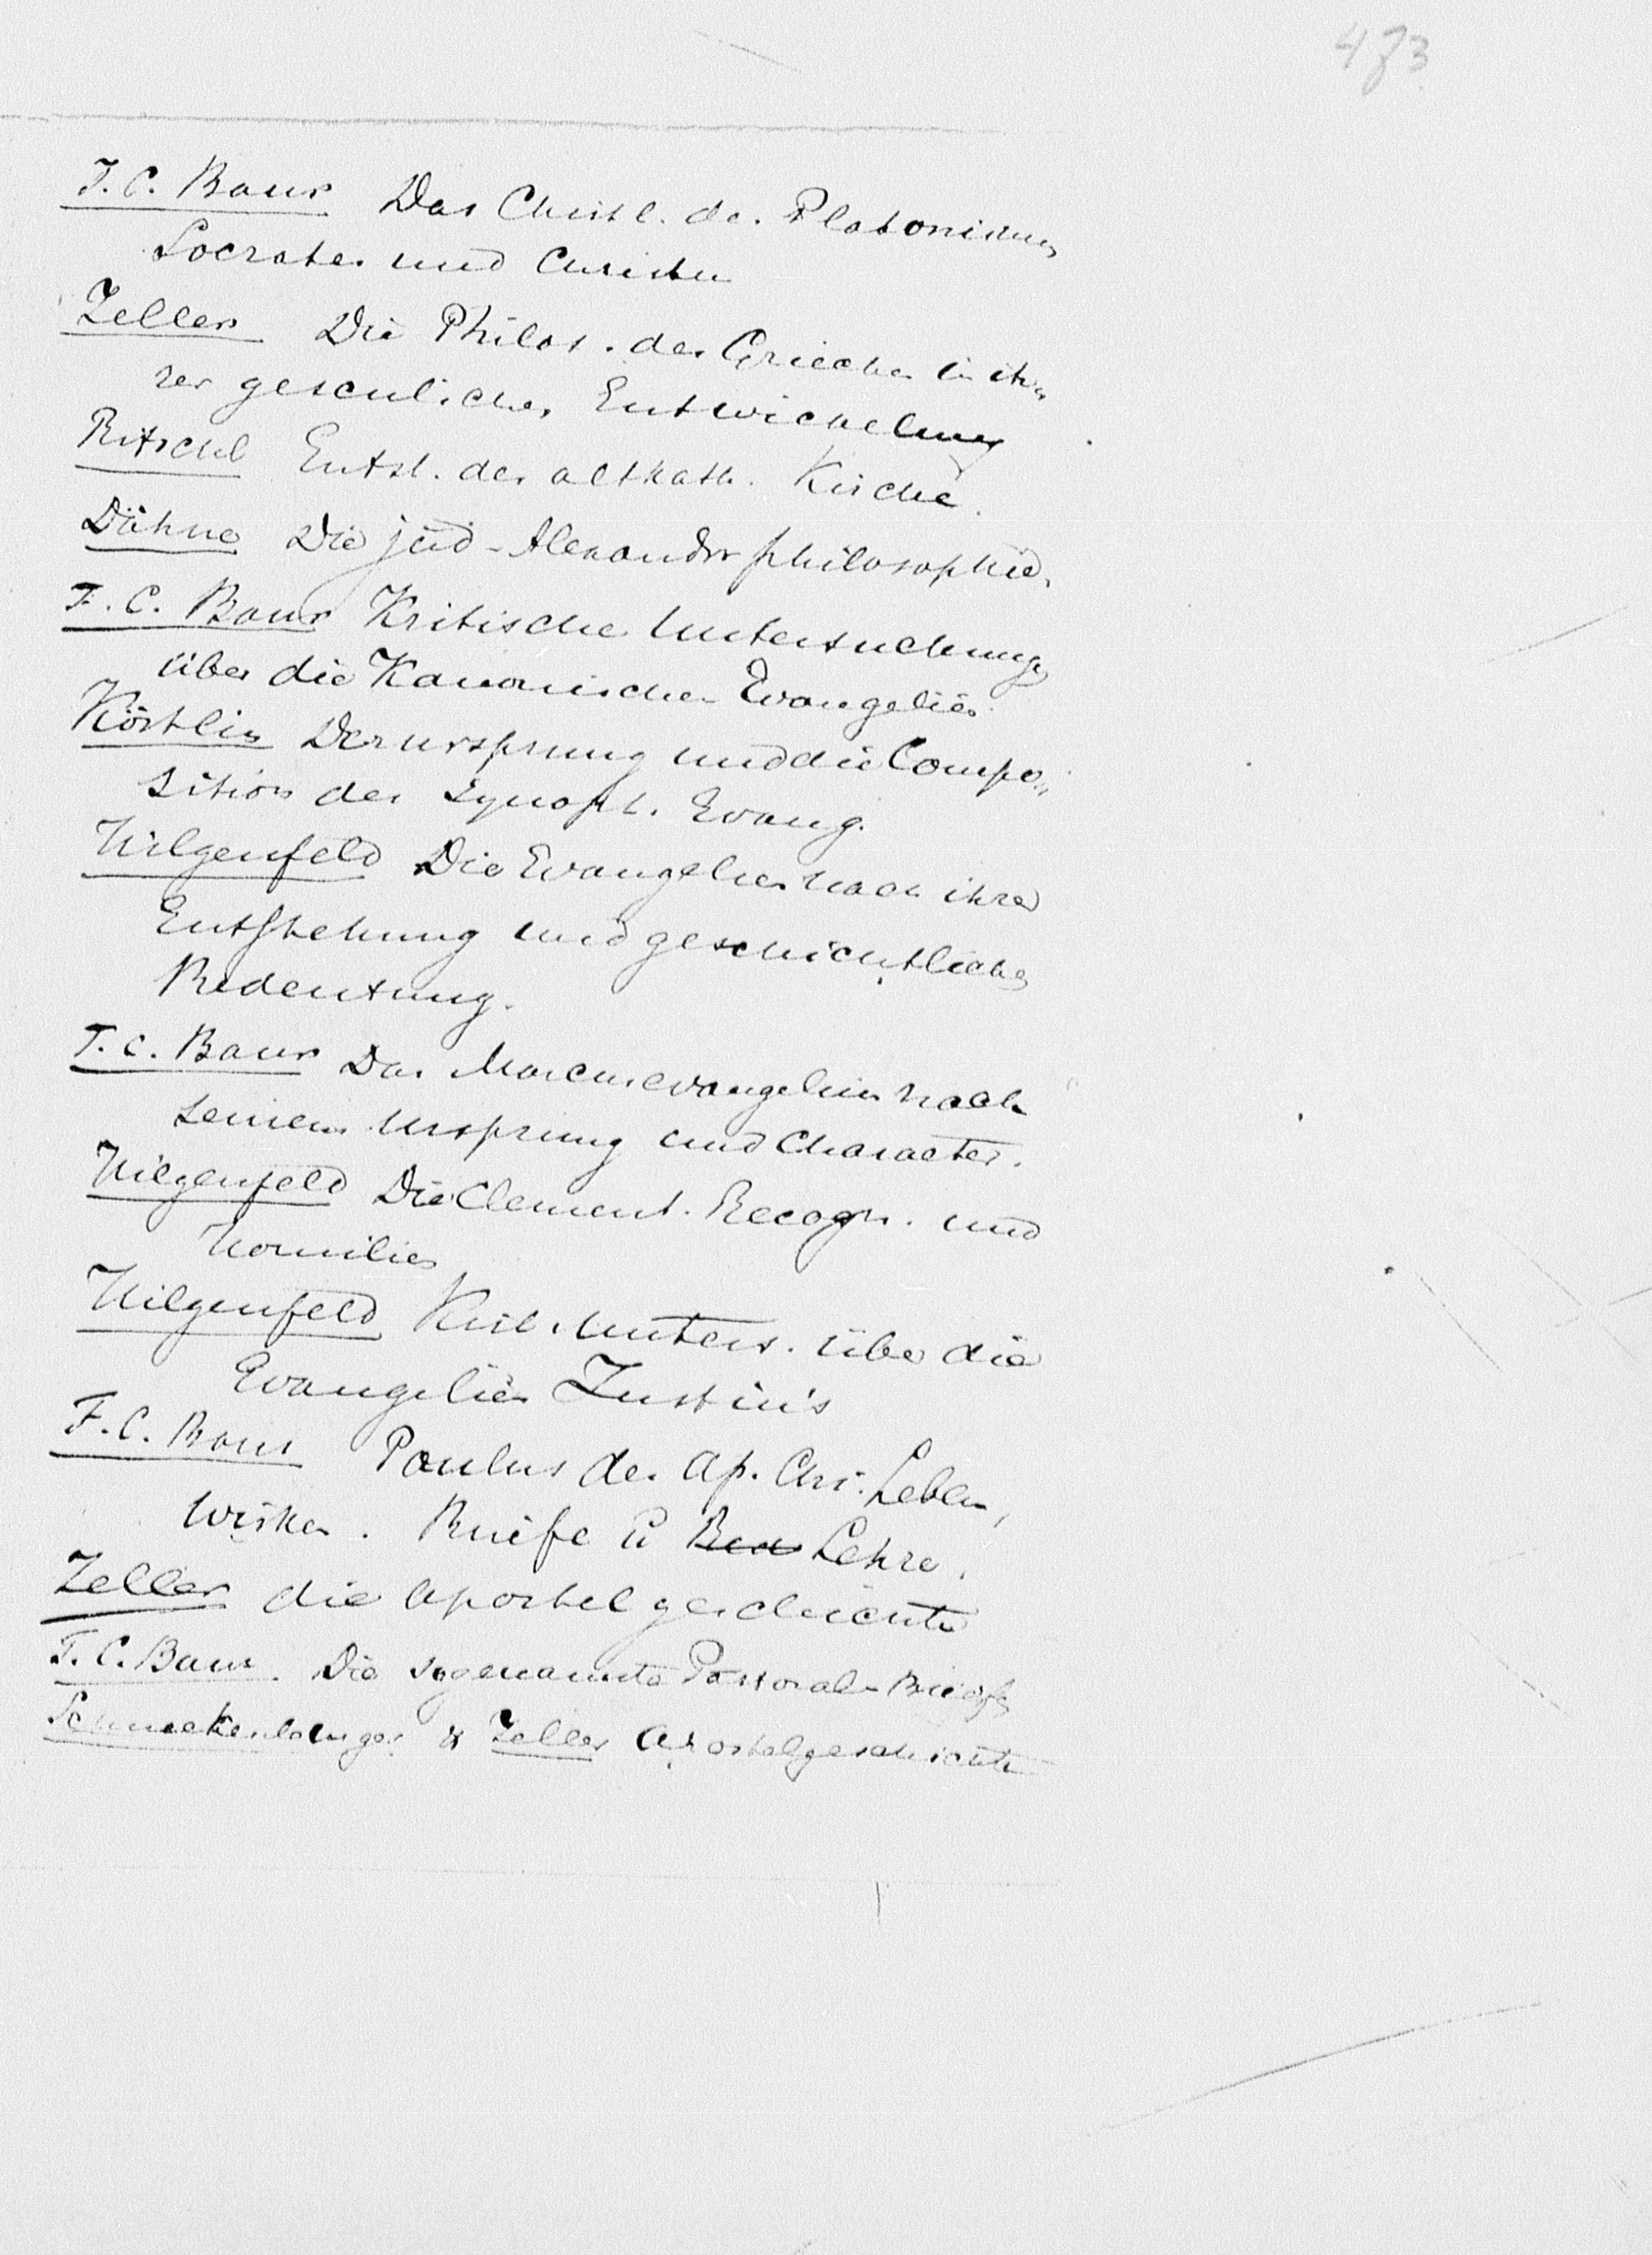 473
F. C. Baur Das Christl. des Platonismus
Socrates und Christus
Zeller Die Philos. der Griechen in ih
rer geschlichen Entwickelung
Ritschl Entst. der altkath. Kirche.
Dähne Die jüd-Alexandr philosophie.
F. C. Baur Kritische Untersuchungen
über die Kanonischen Evangelien
Köstlin Der ursprung und die Compo-
sition der synopt. Evang.
Hilgenfeld Die Evangelien nach ihrer
Entstehung und geschichtlichen
Bedeutung.
F. C. Baur Das Marcusevangelium nach
seinem Ursprung und Character.
Hilgenfeld Die Clement. Recogn. und
Homilien
Hilgenfeld Krit. Unters. über die
Evangelien Justin's
F. C. Baur Paulus der Ap. Chr. Leben,
Wirken. Briefe u Lehre.
Zeller die Apostelgeschichte
F. C. Baur. Die sogenannte Pastoral-Briefe
Schneckenburger & Zeller Apostelgeschichte